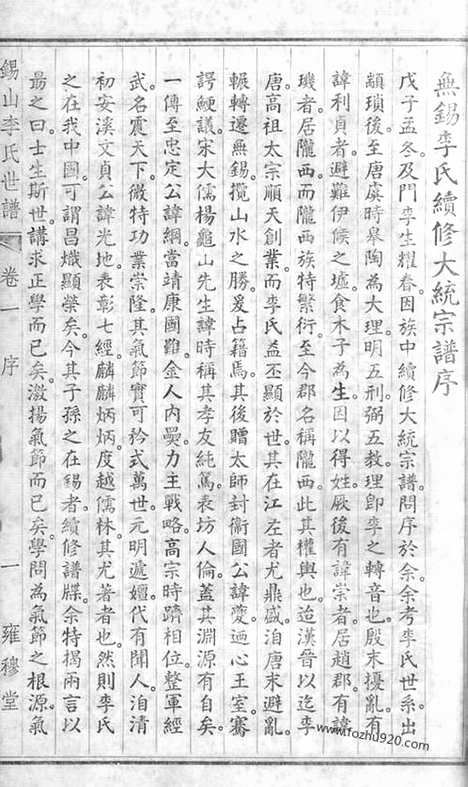 無錫李氏續修大統宗譜序
戊子孟冬及門李生耀春因族中續修大統宗譜問序於余余考李氏世系出
顓頊後至唐虞時臯陶為大理明五刑弼五教理卽李之轉音也殷末擾亂有
諱利貞者避難伊侯之墟食木子為生因以得姓厥後有諱崇者居趙郡有諱
璣者居隴西而隴西族特繁衍至今郡名稱隴西此其權輿也迨漢晉以迄李
唐高祖太宗順天創業而李氏益丕顯於世其在江左者尤鼎盛洎唐末避亂
輾轉遷無錫攬山水之勝爰占籍焉其後贈太師封衞國公諱夔廼心王室謇
諤鯁議宋大儒楊龜山先生諱時稱其孝友純篤表坊人倫蓋其淵源有自矣
一傳至忠定公諱綱當靖康國難金人內釁力主戰略高宗時躋相位整軍經
武名震天下微特功業崇隆其氣節實可矜式萬世元明遞嬗代有聞人洎清
初安溪文貞公諱光地表彰七經麟麟炳炳度越儒林其尤著者也然則李氏
之在我中國可謂昌熾顯榮矣今其子孫之在錫者續修譜牒余特揭兩言以
勗之曰士生斯世講求正學而已矣激揚氣節而已矣學問為氣節之根源氣
錫山李氏世譜 卷一 序 一 雍穆堂
www.fozhu920.com